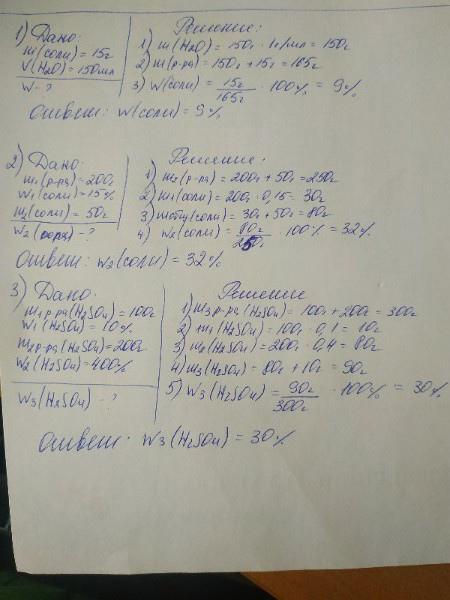 1) Дано:
m(соли) = 15г
V(H2O) = 150мл
W - ?
Решение:
1) m(H2O) = 150г · 1г/мл = 150г
2) m(р-ра) = 150г + 15г = 165г
3) W(соли) = 15г/165г · 100% = 9%
Ответ: W(соли) = 9%
2) Дано:
m1(р-ра) = 200г
W1(соли) = 15%
m2(соли) = 50г
W2 - ?
Решение:
1) m2(р-ра) = 200г + 50г = 250г
2) m1(соли) = 200г · 0,15 = 30г
3) mобщ(соли) = 30г + 50г = 80г
4) W2(соли) = 80г/250г · 100% = 32%
Ответ: W2(соли) = 32%
3) Дано:
m1р-ра(H2SO4) = 100г
W1(H2SO4) = 10%
m2р-ра(H2SO4) = 200г
W2(H2SO4) = 400%
W3(H2SO4) - ?
Решение
1) m3р-ра(H2SO4) = 100г + 200г = 300г
2) m1(H2SO4) = 100г · 0,1 = 10г
3) m2(H2SO4) = 200г · 0,4 = 80г
4) m3(H2SO4) = 80г + 10г = 90г
5) W3(H2SO4) = 90г/300г · 100% = 30%
Ответ: W3(H2SO4) = 30%